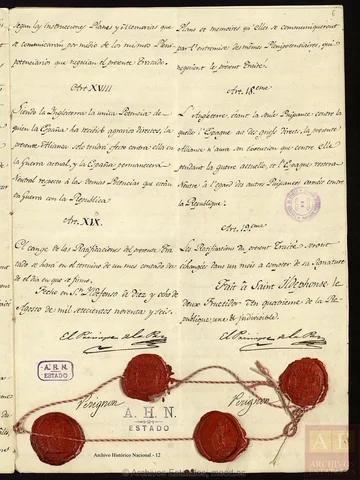 segun las instrucciones Planes y Memorias que
se comunicarán por medio de los mismos Pleni-
potenciarios que negocian el presente Tratado.
Art. XVIII
Siendo la Inglaterra la unica Potencia de
quien la España ha recibido agravios directos, la
presente Alianza solo tendrá efecto contra ella en
la Guerra actual, y la España permanecerá
Neutral respecto á las demas Potencias que están
en Guerra con la Republica
Art. XIX.
El cange de las Ratificaciones del presente Tra-
tado se hará en el termino de un mes contado des-
de el dia en que se firme.
Fecho en Sn. Ildefonso á Diez y ocho de
Agosto de mil setecientos noventa y seis.
El Principe de la Paz
Perignon
Plans et memoires qu'elles se communiqueront
par l'entremise des mêmes Plenipotentiaires, qui
negocient le présent Traité.
Art. 18eme
L'Angleterre, étant la seule Puissance contre la-
quelle l'Espagne ait des griefs Direct, la presente
Alliance n'aura son éxecution que contre elle
pendant la guerre actuelle, et l'Espagne restera
Neutre à l'egard des autres Puissances armées contre
la Republique.
Art. 19eme
Les Ratifications du present Traité seront
échangées dans un mois à compter de sa signature
Fait à Saint Ildephonse le
deux Fructidor l'an quatrieme de la Re-
publique, une & indivisible.
El Principe de la Paz
Perignon
A.H.N.
ESTADO
A.H.N.
ESTADO
Archivo Histórico Nacional - 12
© Archivos Estatales, mecd.es
ARCHIVO